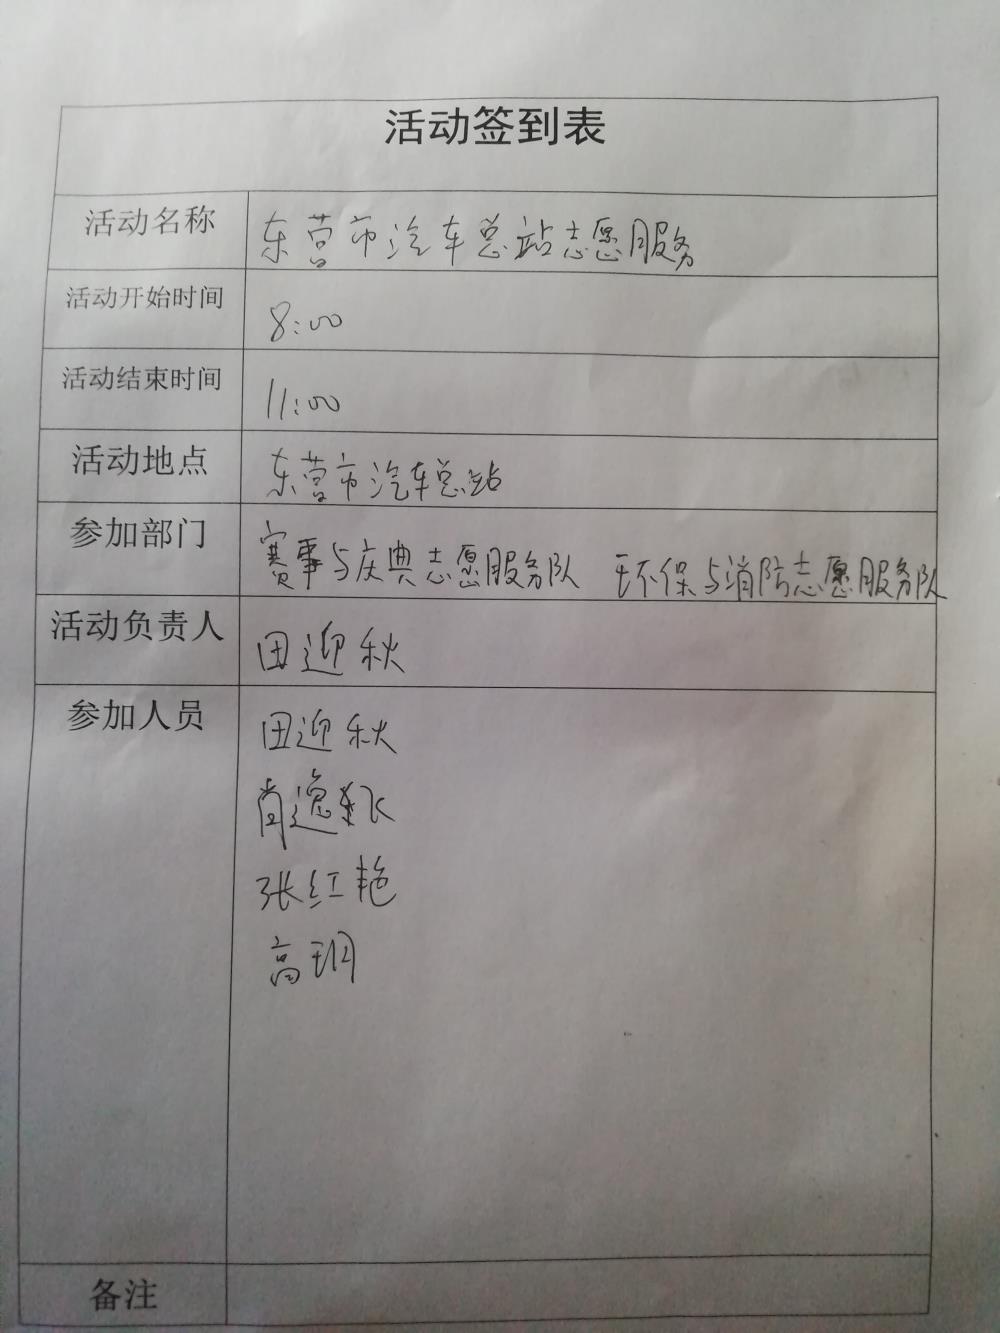 活动签到表
活动名称 东营市汽车总站志愿服务
活动开始时间 8:00
活动结束时间 11:00
活动地点 东营市汽车总站
参加部门 赛事与庆典志愿服务队 环保与消防志愿服务队
活动负责人 田迎秋
参加人员 田迎秋
肖逸飞
张红艳
高玥
备注